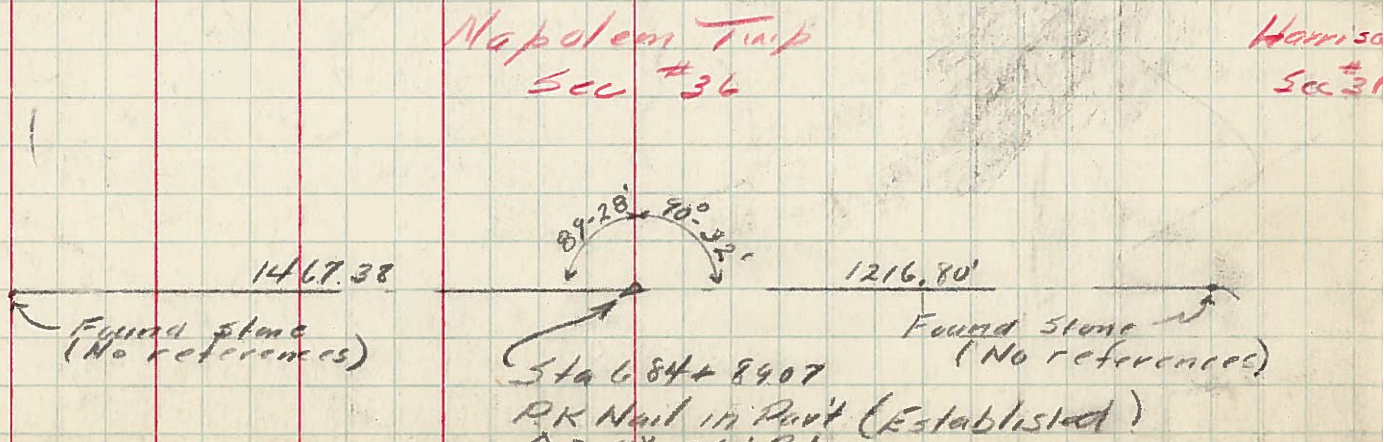 Napoleon Twp
Harriso
Sec #36
Sec #31
89-28'
90°-32'
1467.38
1216.80'
Found Stone
(No references)
Found Stone
(No references)
Sta 684+8907
P.K Nail in Pav't (Established)